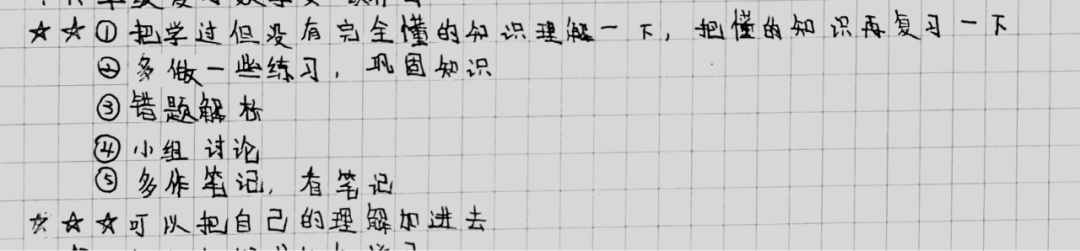 ☆☆①把学过但没有完全懂的知识理解一下，把懂的知识再复习一下
②多做一些练习，巩固知识
③错题解析
④小组讨论
⑤多作笔记，看笔记
☆☆☆可以把自己的理解加进去